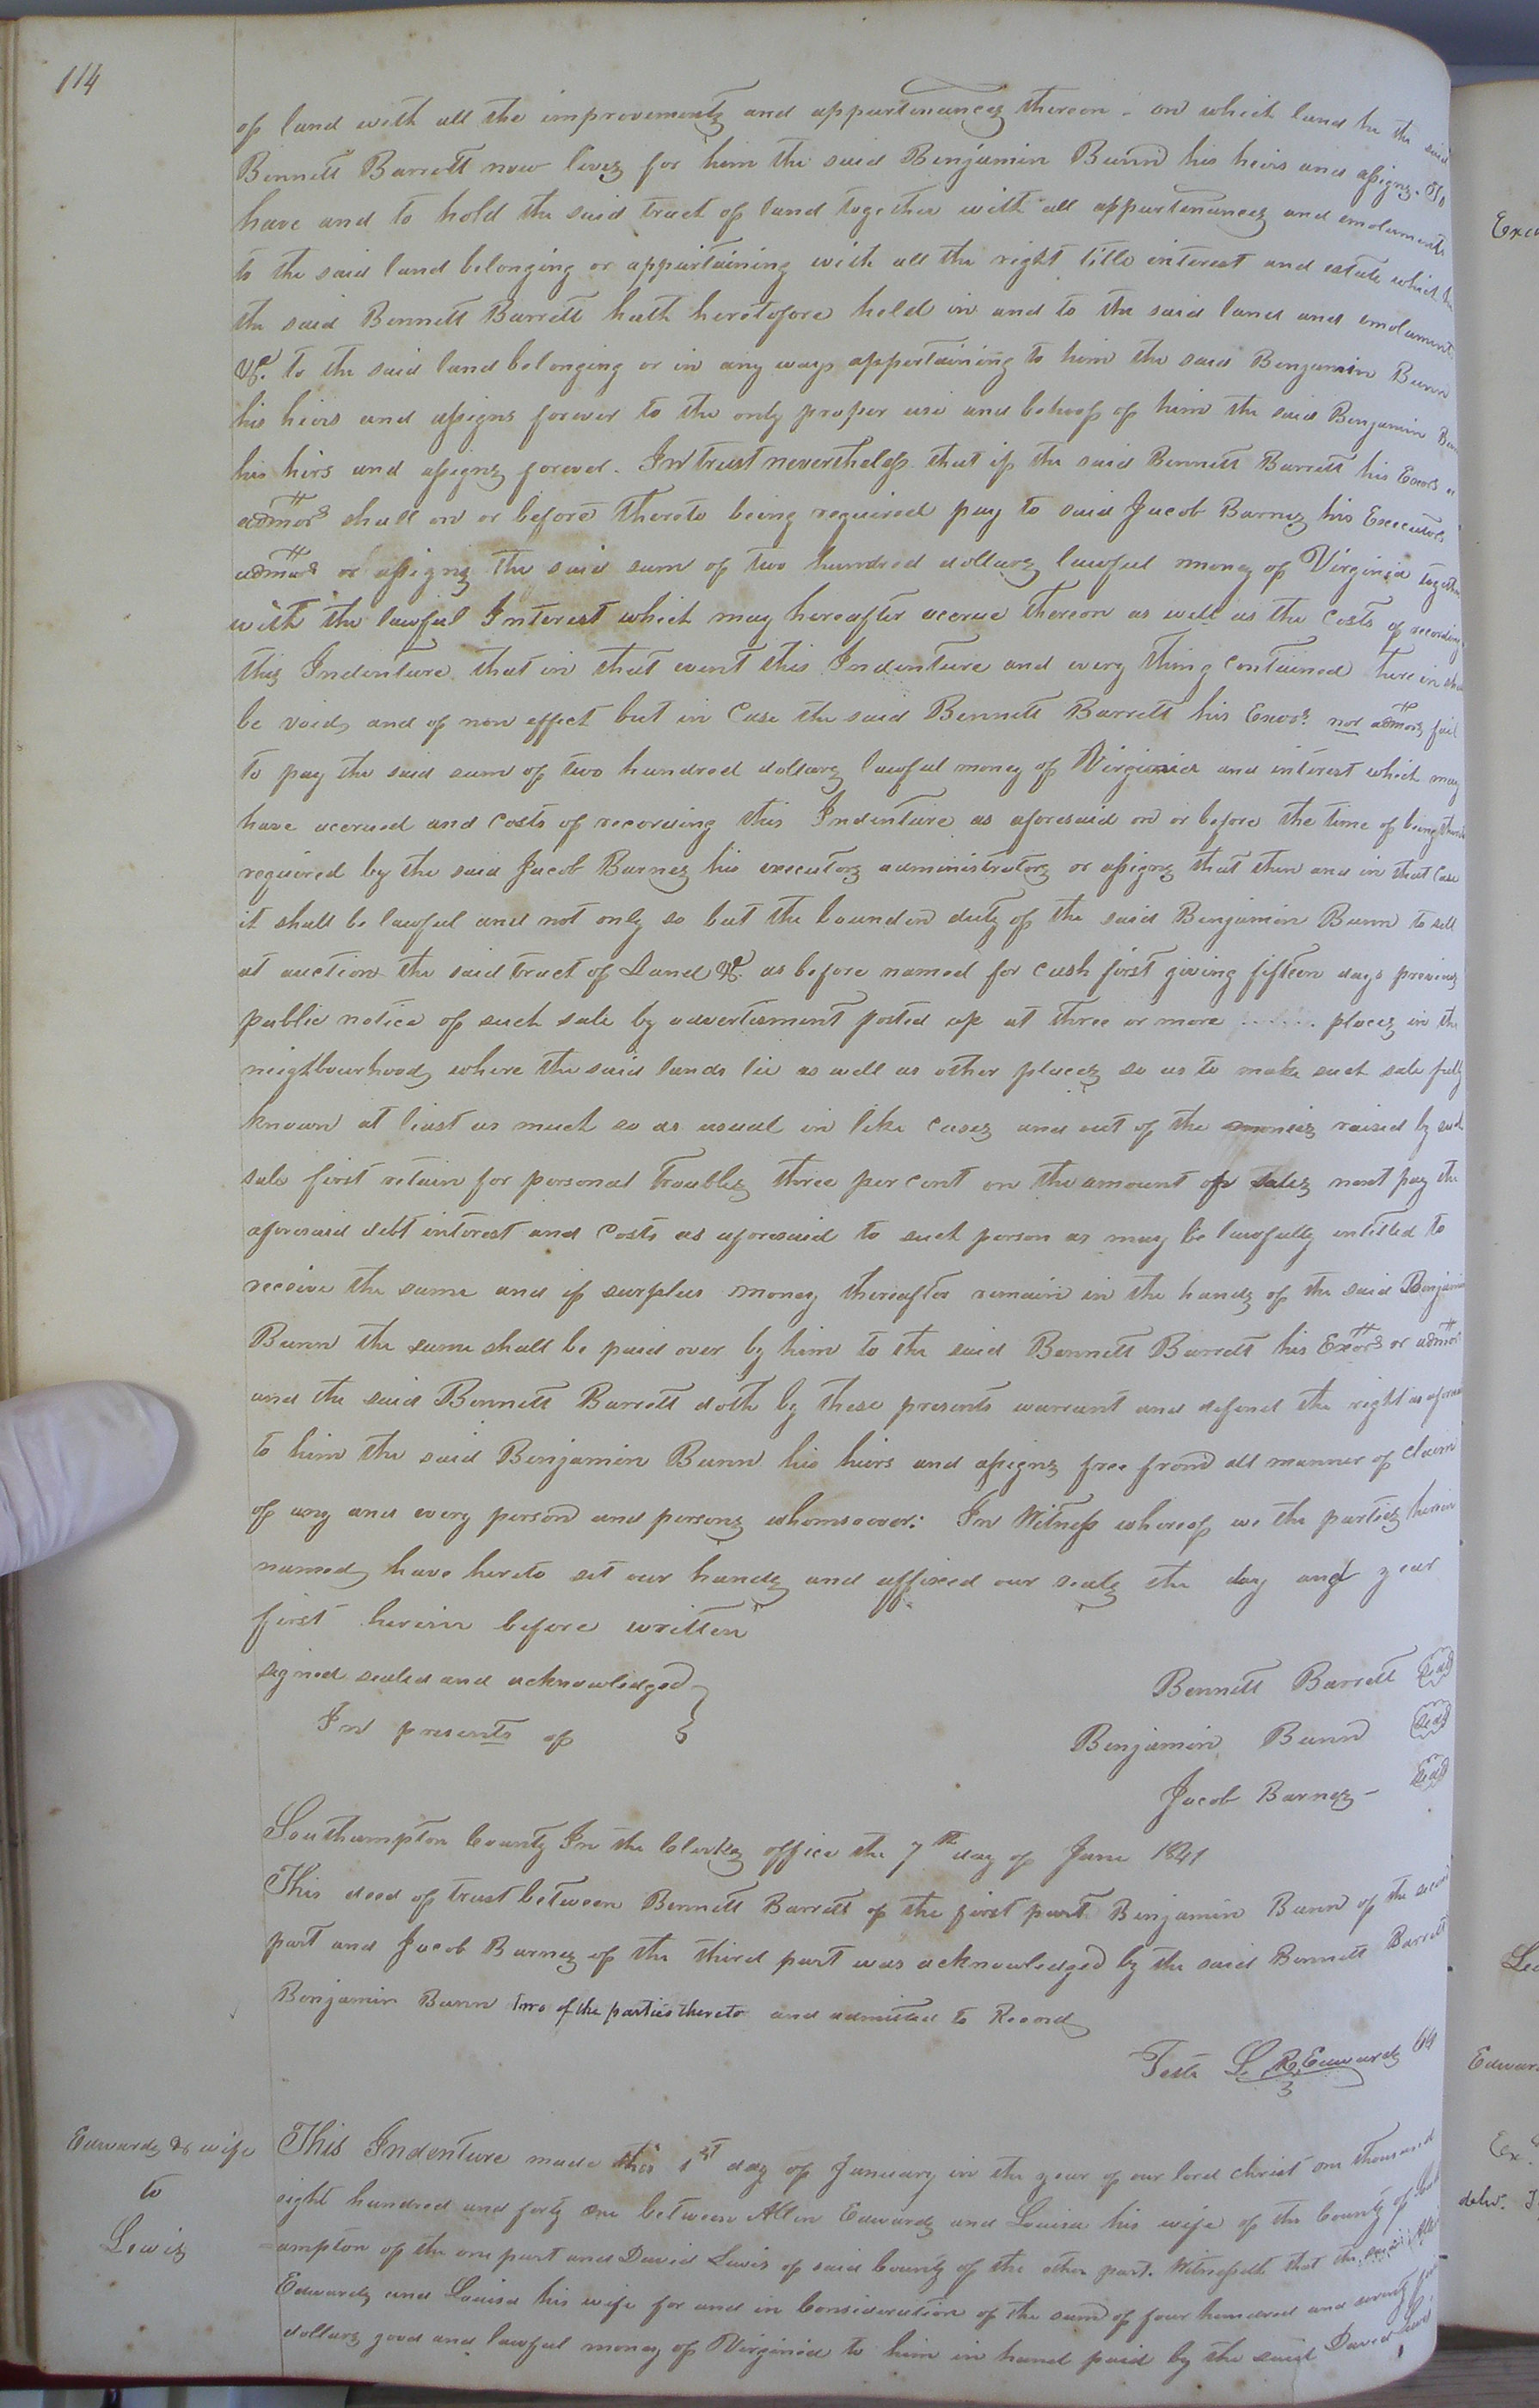 114
of land with all the improvements and appurtenances thereon. on which land he the said
Bennett Barrett now lives for him the said Benjamin Bunn his heirs and assigns. To
have and to hold the said tract of land together with all appurtenances and emoluments
to the said land belonging or appurtaining with all the right title interest and estate which he
the said Bennett Barrett hath heretofore held in and to the said land and emolument
&c. to the said land belonging or in any ways appertaining to him the said Benjamin Bunn
his heirs and assigns forever to the only proper use and behoof of him the said Benjamin Bunn
his heirs and assigns forever. In trust nevertheless that if the said Bennett Barrett his Exors or
admors shall on or before thereto being required pay to said Jacob Barnes his Executors
admors or assigns the said sum of two hundred dollars lawful money of Virginia together
with the lawful Interest which may hereafter accrue thereon as well as the Costs of recording
this Indenture that in that event this Indenture and every thing contained therein shall
be void, and of non effect but in Case the said Bennett Barrett his Exors. nor admors fail
to pay the said sum of two hundred dollars lawful money of Virginia and interest which may
have accrued and Costs of recording this Indenture as aforesaid on or before the time of being thereto
required by the said Jacob Barnes his executors administrators or assigns that then and in that Case
it shall be lawful and not only so but the bounden duty of the said Benjamin Bunn to sell
at auction the said tract of Land &c. as before named for cash first giving fifteen days previous
public notice of such sale by advertisment posted up at three or more ...... places in the
neighbourhood, where the said lands lie as well as other places so as to make such sale fully
known at least as much so as usual in like cases and out of the monies raised by such
sale first retain for personal troubles three per cent on the amount of sales next pay the
aforesaid debt interest and Costs as aforesaid to such person as may be lawfully entitled to
receive the same and if surplus money thereafter remain in the hands of the said Benjamin
Bunn the same shall be paid over by him to the said Bennett Barrett his Exors or admors
and the said Bennett Barrett doth by these presents warrant and defend the right as aforesaid
to him the said Benjamin Bunn his heirs and assigns free from all manner of claim
of any and every person and persons whomsoever: In Witness whereof we the parties herein
named, have hereto set our hands and affixed our seals the day and year
first herein before written
signed sealed and acknowledged }
In presents of
Bennett Barrett Seal
Benjamin Bunn Seal
Jacob Barnes - Seal
Southampton County In the Clerks office the 7th day of June 1841
This deed of trust between Bennett Barrett of the first part Benjamin Bunn of the second
part and Jacob Barnes of the third part was acknowledged by the said Bennett Barrett
Benjamin Bunn two of the parties thereto and admitted to Record
Teste L. R. Edwards Clk
Edwards & wife
to
Lewis
This Indenture made this 1st day of January in the year of our lord christ one thousand
eight hundred and forty one between Allen Edwards and Louisa his wife of the County of South
ampton of the one part and David Lewis of said County of the other part. Witnesseth that the said Allen
Edwards and Louisa his wife for and in Consideration of the sum of four hundred and seventy five
dollars good and lawful money of Virginia to him in hand paid by the said David Lewis